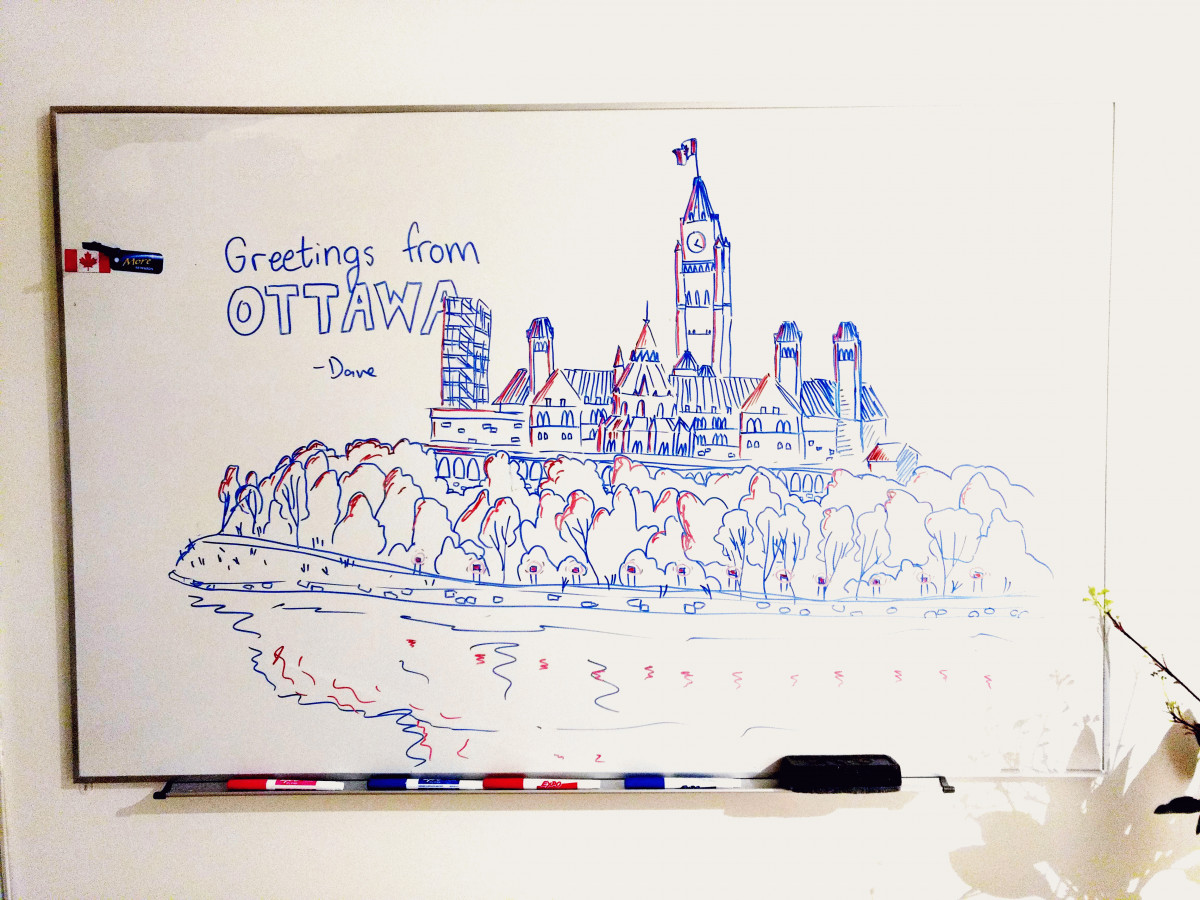 Greetings from
OTTAWA
-Dave
More
EXPO